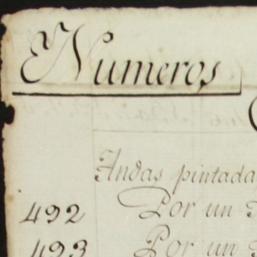 Numeros
Andas pintada
492 Por un
493 Por un